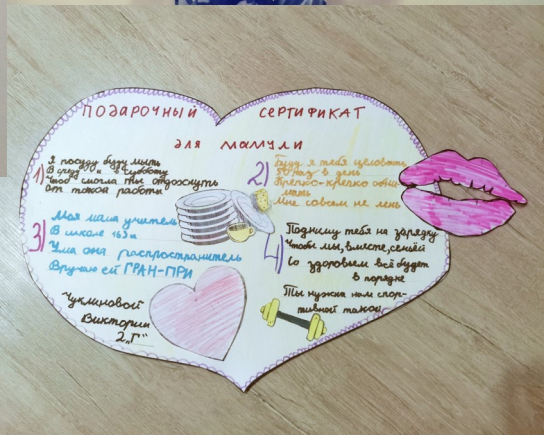 ПОДАРОЧНЫЙ СЕРТИФИКАТ
для мамули
1) Я посуду буду мыть
В среду и в субботу
Чтоб смогла ты отдохнуть
От такой работы
2) Буду я тебя целовать
50 раз в день
Крепко-крепко обни-
мать
Мне совсем не лень
3) Моя мама учитель
В школе 163
Ума она распространитель
Вручаю ей ГРАН-ПРИ
4) Подниму тебя на зарядку
Чтобы мы, вместе, семьёй
Со здоровьем всё будет
в порядке
Ты нужна нам спор-
тивной такой
Чуклиновой
Виктории
2 "Г"